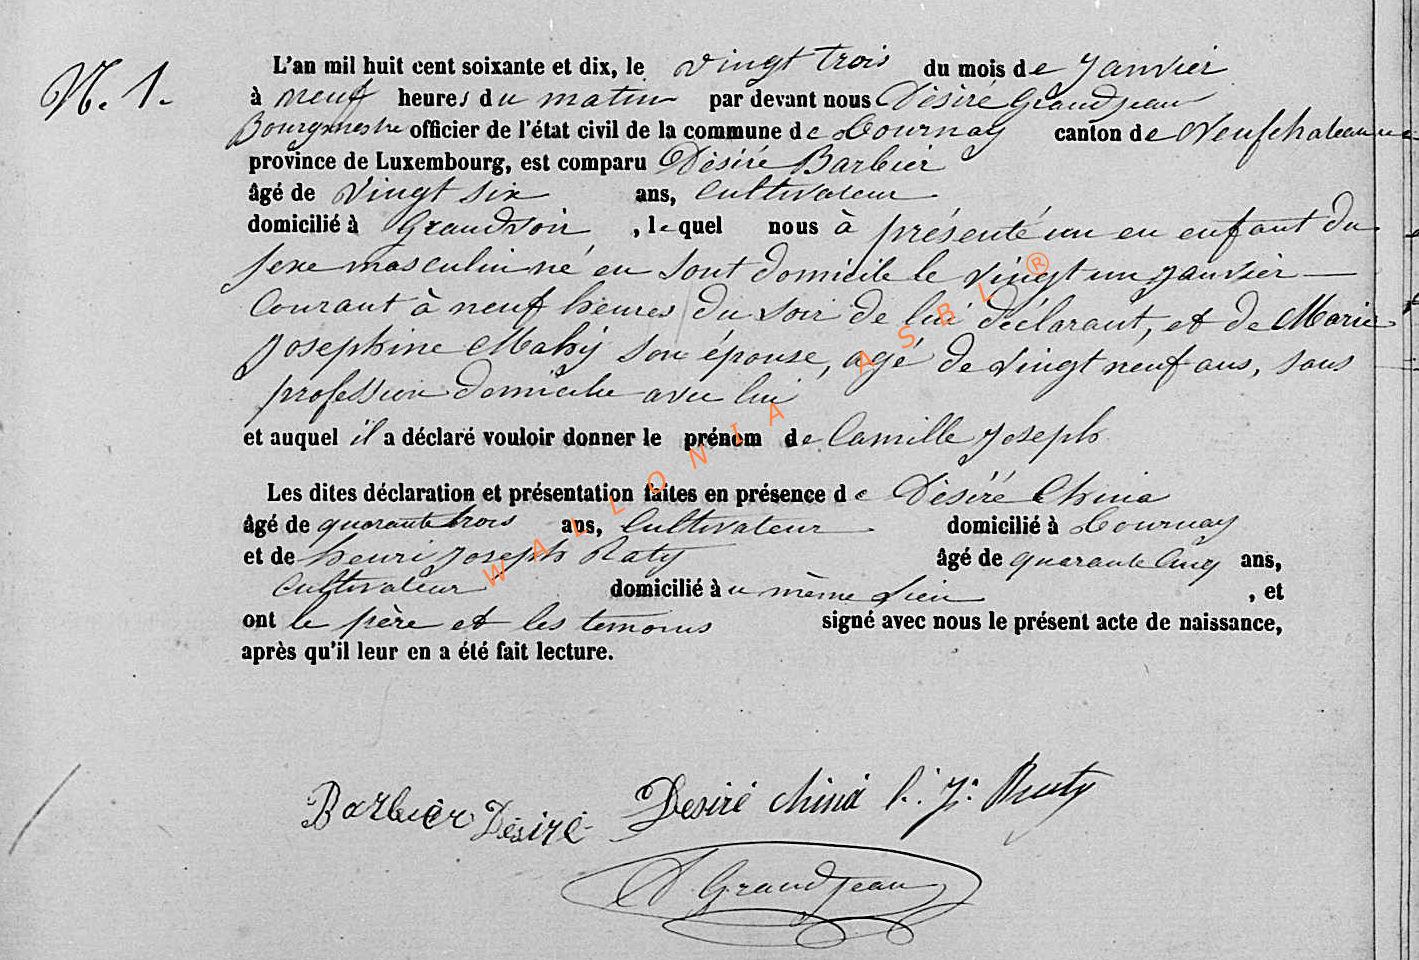 N. 1.
L'an mil huit cent soixante et dix, le vingt trois du mois de Janvier
à neuf heures du matin par devant nous Désiré Grandjean
Bourgmestre officier de l'état civil de la commune de Tournay canton de Neufchateau
province de Luxembourg, est comparu Désiré Barbier
âgé de vingt six ans, Cultivateur
domicilié à Grandvoir, lequel nous à présenté un en enfant du
sexe masculin né en sont domicile le vingt un janvier
Courant à neuf heures du soir de lui déclarant, et de Marie
Josephine Mahy son épouse, agé de vingt neuf ans, sans
profession domicilie avec lui
et auquel il a déclaré vouloir donner le prénom de Camille Joseph
Les dites déclaration et présentation faites en présence de Désiré China
âgé de quarante trois ans, Cultivateur domicilié à Tournay
et de henri Joseph Raty âgé de quarante Cinq ans,
Cultivateur domicilié àu même Lieu, et
ont le père et les temoins signé avec nous le présent acte de naissance,
après qu'il leur en a été fait lecture.
Barbier Désiré Desiré China h. J. Raty
D Grandjean
WALLONIA ASBL ®